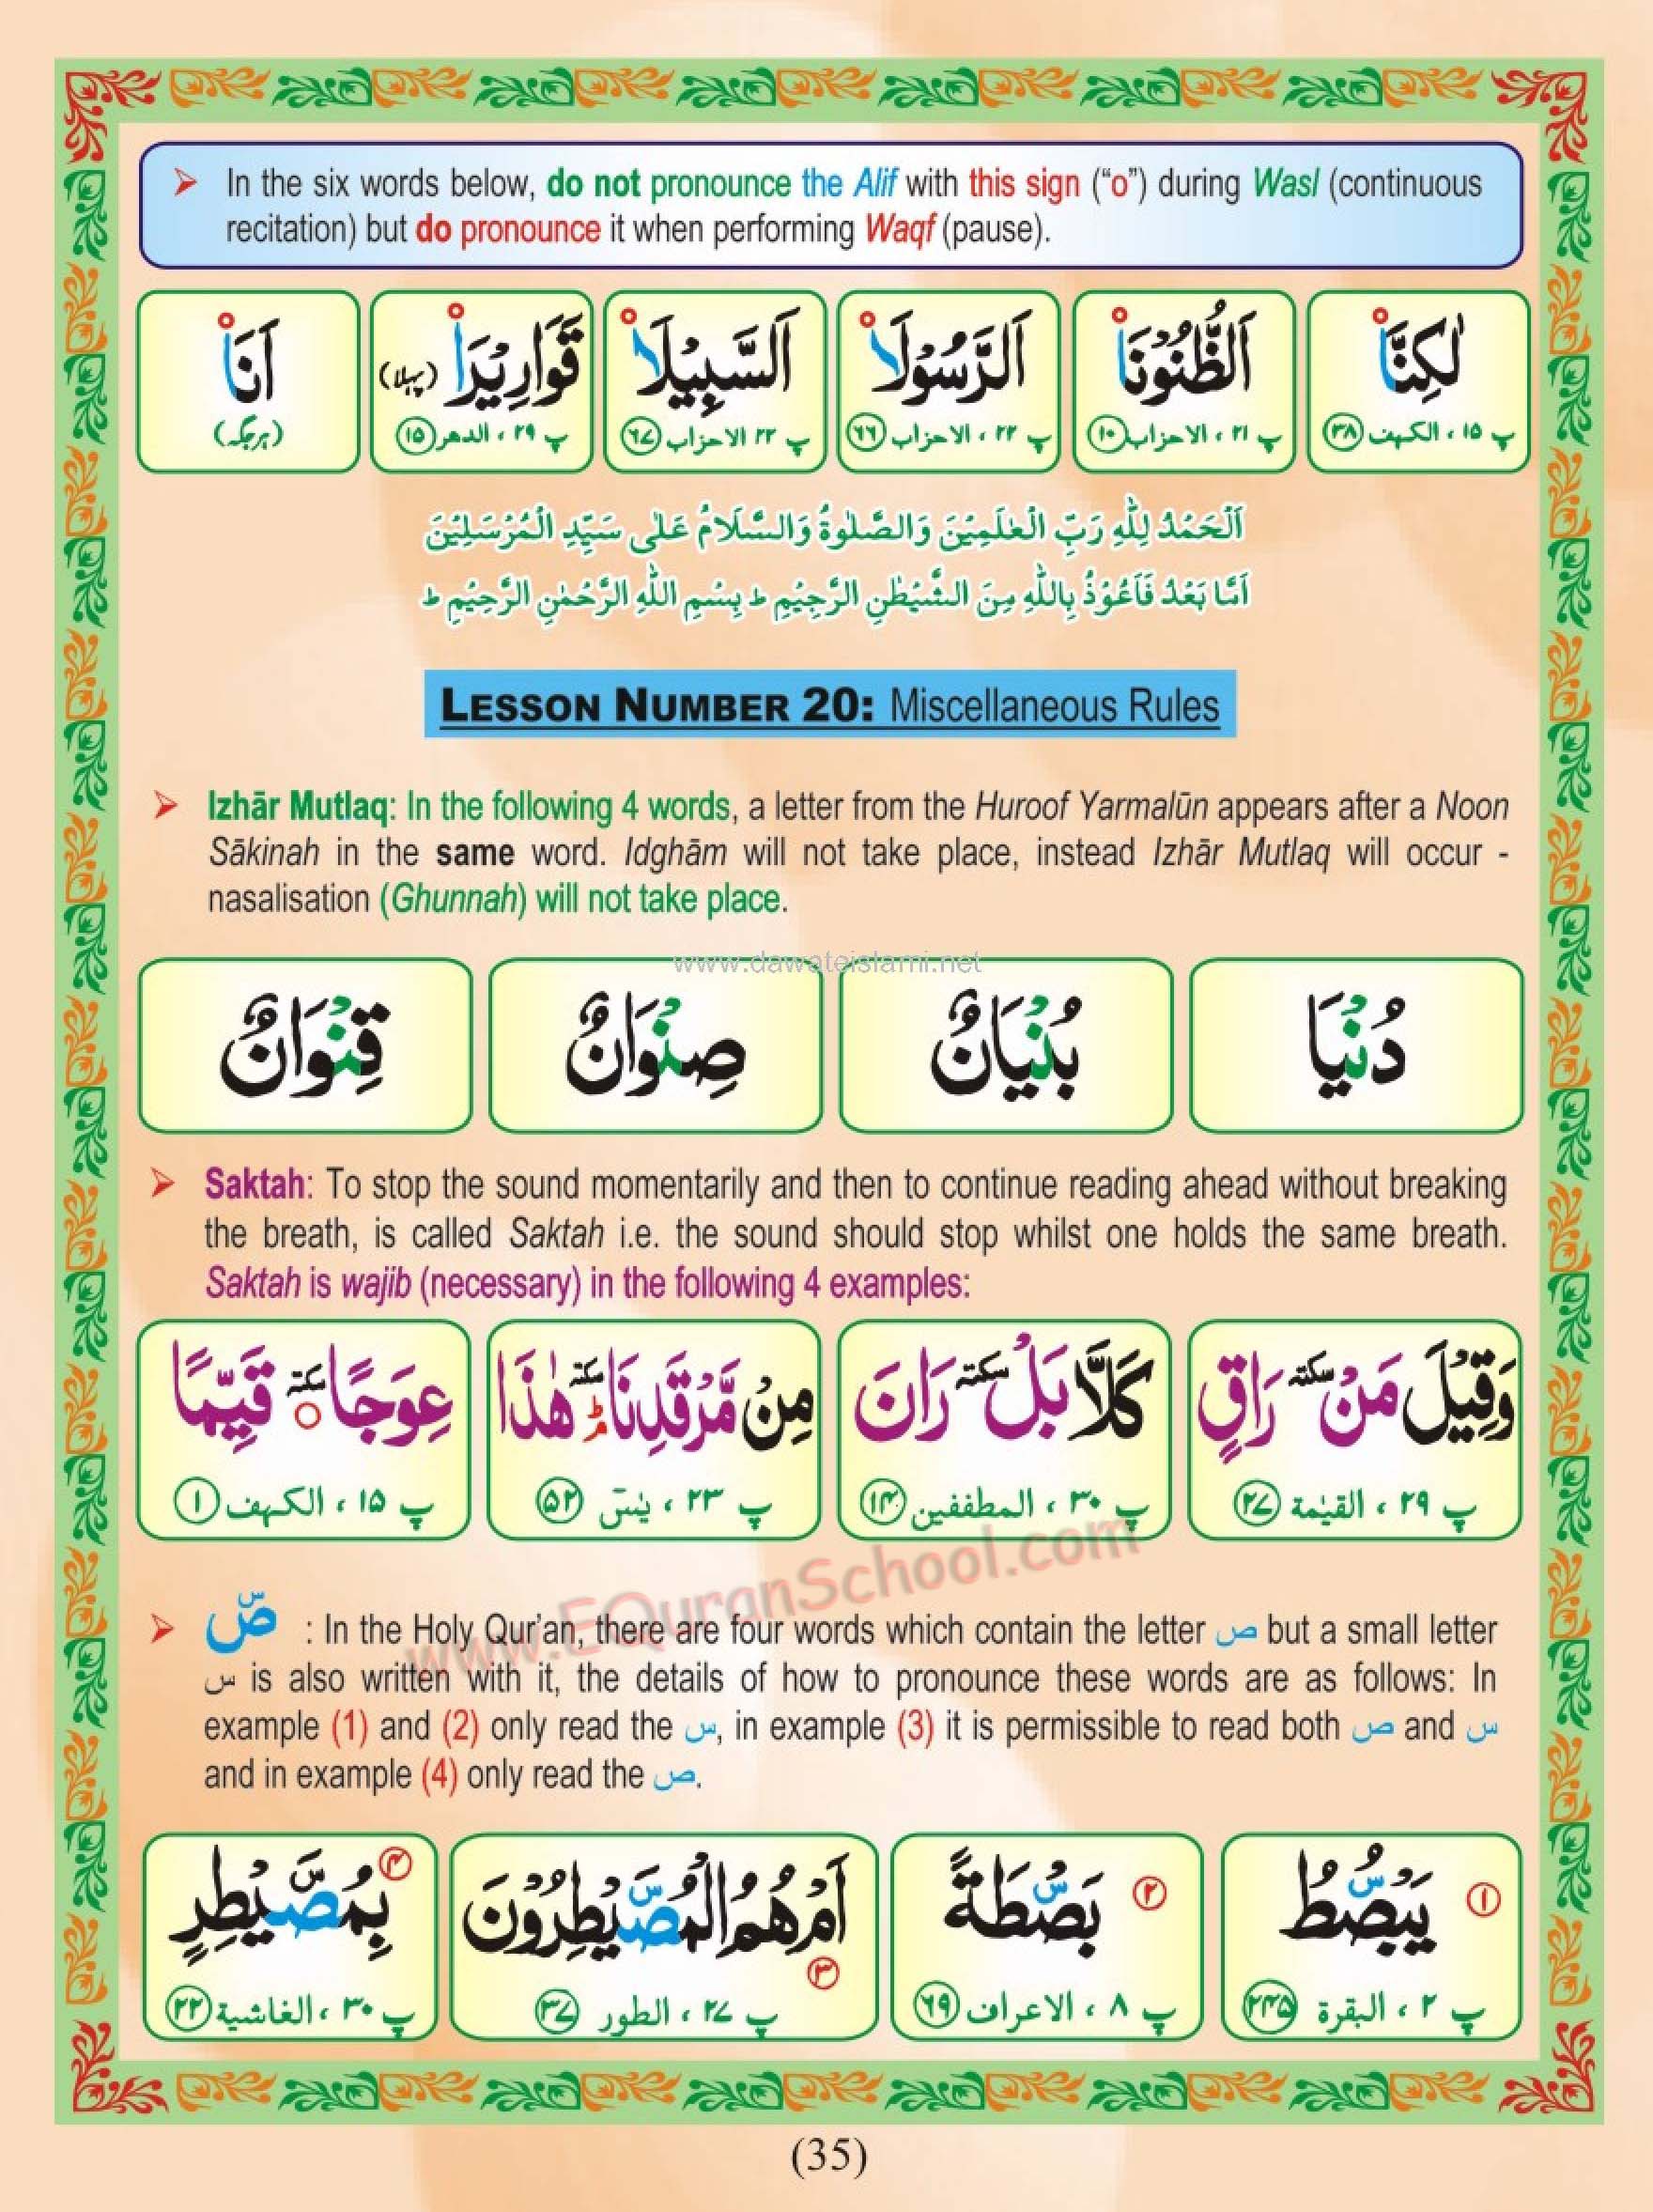 ➢ In the six words below, do not pronounce the Alif with this sign (“o”) during Wasl (continuous
recitation) but do pronounce it when performing Waqf (pause).
لٰكِنَّا اَلظُّنُوْنَا اَلرَّسُوْلَا اَلسَّبِيْلَا قَوَارِيْرَا (پہلا) اَنَا
پ ۱۵ ، الكهف ۳۸ پ ۲۱ ، الاحزاب ۱۰ پ ۲۲ ، الاحزاب ۶۶ پ ۲۲ الاحزاب ۶۷ پ ۲۹ ، الدهر ۱۵ (ہر جگہ)
اَلْحَمْدُ لِلّٰهِ رَبِّ الْعٰلَمِيْنَ وَالصَّلٰوةُ وَالسَّلَامُ عَلٰى سَيِّدِ الْمُرْسَلِيْنَ
اَمَّا بَعْدُ فَاَعُوْذُ بِاللّٰهِ مِنَ الشَّيْطٰنِ الرَّجِيْمِ ط بِسْمِ اللّٰهِ الرَّحْمٰنِ الرَّحِيْمِ ط
LESSON NUMBER 20: Miscellaneous Rules
➢ Izhār Mutlaq: In the following 4 words, a letter from the Huroof Yarmalūn appears after a Noon
Sākinah in the same word. Idghām will not take place, instead Izhār Mutlaq will occur -
nasalisation (Ghunnah) will not take place.
www.dawateislami.net
دُنْيَا بُنْيَانٌ صِنْوَانٌ قِنْوَانٌ
➢ Saktah: To stop the sound momentarily and then to continue reading ahead without breaking
the breath, is called Saktah i.e. the sound should stop whilst one holds the same breath.
Saktah is wajib (necessary) in the following 4 examples:
وَقِيْلَ مَنْ سكتة رَاقٍ كَلَّا بَلْ سكتة رَانَ مِنْ مَّرْقَدِنَا سكتة هٰذَا عِوَجًا سكتة قَيِّمًا
پ ۲۹ ، القيٰمة ۲۷ پ ۳۰ ، المطففين ۱۴ پ ۲۳ ، يٰسٓ ۵۲ پ ۱۵ ، الكهف ۱
www.EQuranSchool.com
➢ صۜ : In the Holy Qur’an, there are four words which contain the letter ص but a small letter
س is also written with it, the details of how to pronounce these words are as follows: In
example (1) and (2) only read the س, in example (3) it is permissible to read both ص and س
and in example (4) only read the ص.
۱ يَبْصُۜطُ ۲ بَصْۜطَةً ۳ اَمْ هُمُ الْمُصَۜيْطِرُوْنَ ۴ بِمُصَۜيْطِرٍ
پ ۲ ، البقرة ۲۴۵ پ ۸ ، الاعراف ۶۹ پ ۲۷ ، الطور ۳۷ پ ۳۰ ، الغاشية ۲۲
(35)